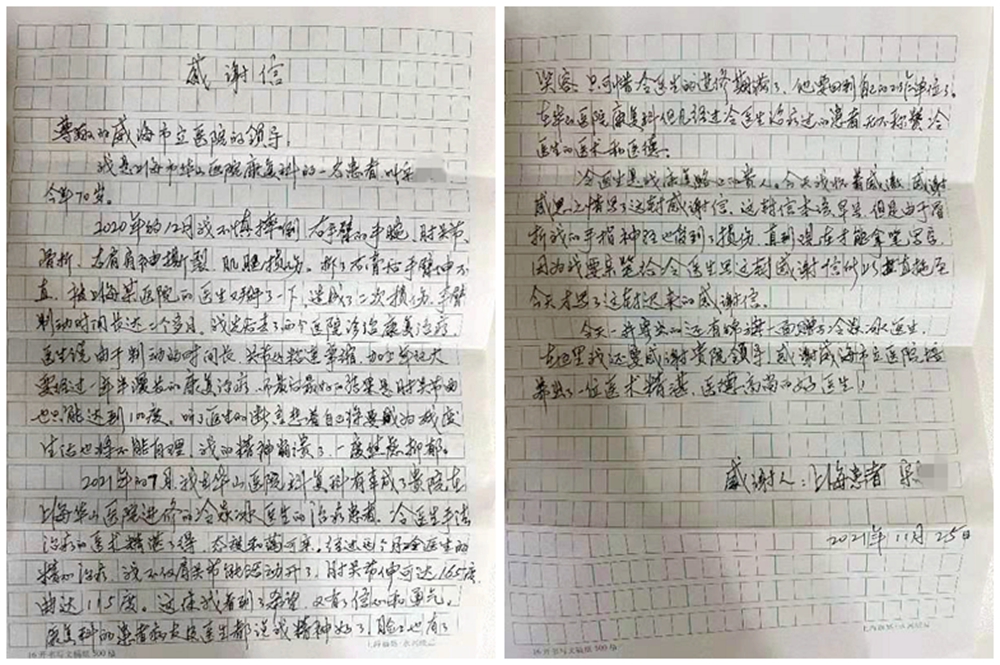 感谢信
尊敬的威海市立医院的领导：
我是上海市华山医院康复科的一名患者，叫乐
今年70岁。
2020年的12月我不慎摔倒，右手臂的手腕、肘关节、
骨折，右肩肩袖撕裂，肌腱损伤。拆了石膏后手臂伸不
直，被上海某医院的医生又掰了一下，造成了二次损伤，手臂
制动时间长达三个多月。我先后去了两个医院诊治康复治疗，
医生说由于制动的时间长，关节处粘连挛缩，
要经过一年半漫长的康复治疗，而最后最好的结果是肘关节曲
也只能达到90度。听了医生的断言想着自己将要成为残废
生活也将不能自理，我的精神崩溃了，一度焦虑抑郁。
2021年的7月我在华山医院科复科有幸成了贵院在
上海华山医院进修的冷冰医生的治疗患者，冷医生手法
治疗的医术精湛了得，态度和蔼可亲。经过两个月冷医生的
精心治疗，我不仅肩关节能活动开了，肘关节伸可达165度，
曲达115度。这使我看到了希望，又有了信心和勇气。
康复科的患者和大夫医生都说我精神好了，脸上也有了
16开书写文稿纸 500格
笑容。只可惜冷医生的进修期满了，他要回到自己的工作单位了。
在华山医院康复科但凡经过冷医生治疗过的患者无不称赞冷
医生的医术和医德。
冷医生是我康复路上的贵人。今天我怀着感激、感谢
感恩之情写了这封感谢信。这封信本该早写，但是由于骨
折我的手指神经也伤到了损伤，直到现在才能拿笔写字，
因为我要亲笔给冷医生写这封感谢信所以一直拖至
今天才写了这封迟来的感谢信。
今天一并寄出的还有锦旗一面赠予冷冰医生。
在这里我还要感谢贵院领导，感谢威海市立医院培
养出了一位医术精湛、医德高尚的好医生！
感谢人：上海患者 乐
2021年11月25日
16开书写文稿纸 500格